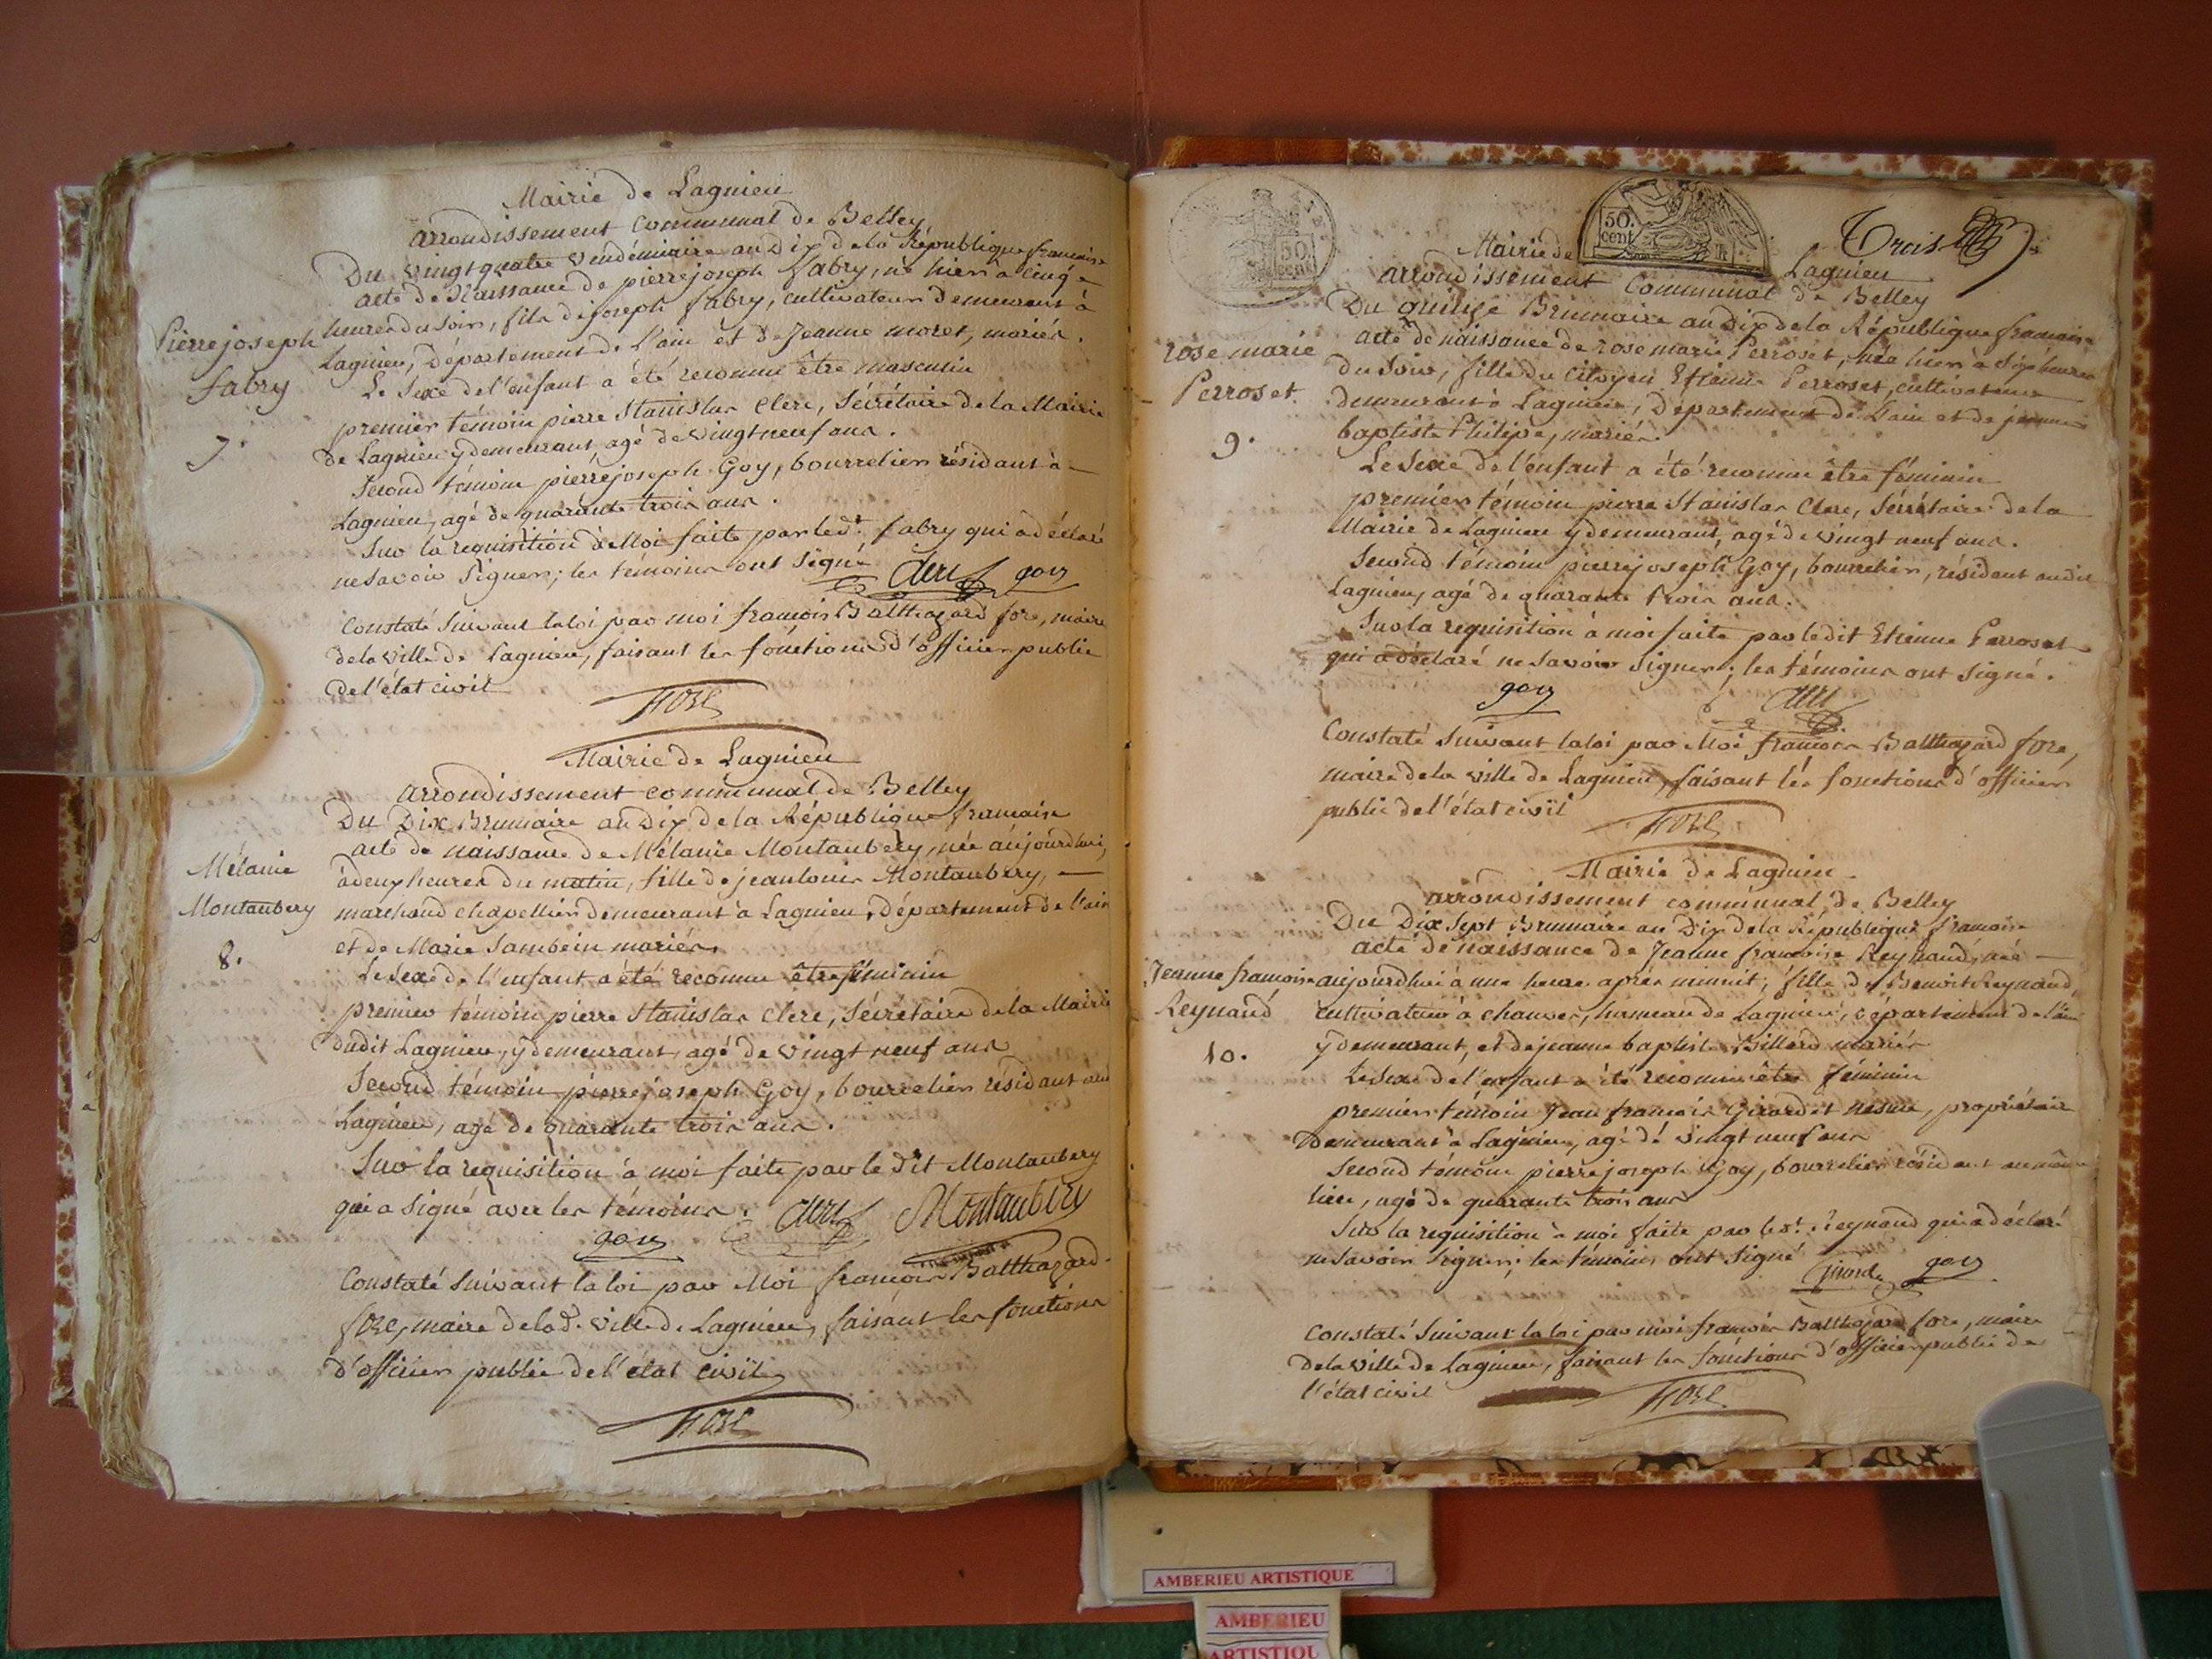 Mairie de Lagnieu
arrondissement communal de Belley
Du vingt quatre vendémiaire an dix de la République francaise
acte de Naissance de pierre joseph fabry, né hier à cinq
heures du soir, fils de joseph fabry, cultivateur demeurant à
Lagnieu, Département de l'ain et de Jeanne moret, mariés.
Pierre joseph
fabry
7.
Le Sexe de l'enfant a été reconnu être masculin
premier témoin pierre Stanislas Clerc, Sécrétaire de la Mairie
de Lagnieu ÿ demeurant, agé de vingt neuf ans.
Second témoin pierre joseph Goy, bourrelier résidant à
Lagnieu, agé de quarante trois ans.
Sur la requisition à Moi faite par led.t fabry qui a déclaré
ne Savoir Signer; les témoins ont Signé Clerc goy
Constaté Suivant la loi par moi francois Balthazard fore, maire
de la ville de Lagnieu, faisant les fonctions d'officier public
de l'état civil
FORE
Mairie de Lagnieu
arrondissement communal de Belley
Du Dix Brumaire an Dix de la République francaise
acte de naissance de Mélanie Montaubery, née aujourdhui,
à deux heures du matin, fille de jean louis Montaubery,
marchand chapellier demeurant à Lagnieu, département de l'ain
et de Marie Sambein mariés.
Mélanie
Montaubery
8.
Le Sexe de l'enfant a été reconnu être féminin
premier témoin pierre Stanislas Clerc, Sécrétaire de la Mairie
dudit Lagnieu, ÿ demeurant, agé de vingt neuf ans
Second témoin pierre joseph Goy, bourrelier résidant aud
Lagnieu, agé de quarante trois ans.
Sur la requisition à moi faite par le dit Montaubery
qui a Signé avec les témoins. Clerc Montaubery
goy
Constaté Suivant la loi par Moi francois Balthazard
fore, maire de lad. ville de Lagnieu, faisant les fonctions
d'officier public de l'état civil
FORE
50. cent
50. cent
Trois
Mairie de Lagnieu
arrondissement Communal de Belley
Du quinze Brumaire an Dix de la République francaise
acte de naissance de rose marie Perroset, née hier à Six heures
du Soir, fille du Citoyen Etienne Perroset, cultivateur
demeurant à Lagnieu, Département de l'ain et de jeanne
baptiste Philipe, mariés.
rose marie
Perroset.
9.
Le Sexe de l'enfant a été reconnu être féminin
premier témoin pierre Stanislas Clerc, Sécrétaire de la
Mairie de Lagnieu ÿ demeurant, agé de vingt neuf ans.
Second témoin pierre joseph Goy, bourrelier, résidant audit
Lagnieu, agé de quarante trois ans.
Sur la requisition à moi faite par ledit Etienne Perroset
qui a déclaré ne Savoir Signer; les témoins ont Signé.
goy Clerc
Constaté Suivant la loi par Moi francois Balthazard fore,
maire de la ville de Lagnieu, faisant les fonctions d'officier
public de l'état civil
FORE
Mairie de Lagnieu
arrondissement communal de Belley
Du Dix Sept Brumaire an Dix de la République francaise
acte de naissance de Jeanne francoise Reynaud, née
aujourdhui à une heure après minuit, fille de Benoit Reynaud,
cultivateur à chanves, hameau de Lagnieu, département de l'ain
ÿ demeurant, et de jeanne baptiste Billard mariés
Jeanne francoise
Reynaud
10.
Le Sexe de l'enfant a été reconnu être féminin
premier témoin Jean francois Girardet, propriétaire
Demeurant à Lagnieu, agé de vingt neuf ans
Second témoin pierre joseph Goy, bourrelier résidant au même
lieu, agé de quarante trois ans
Sur la requisition à moi faite par led.t Reynaud qui a déclaré
ne Savoir Signer; les témoins ont Signé
goy
Constaté Suivant la loi par moi francois Balthazard fore, maire
de la ville de Lagnieu, faisant les fonctions d'officier public de
l'état civil
FORE
AMBERIEU ARTISTIQUE
AMBERIEU
ARTISTIQU